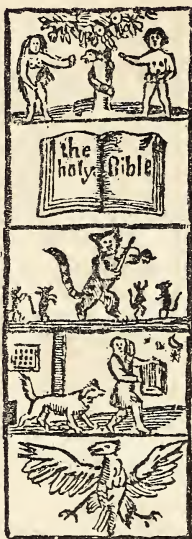 the
holy Bible